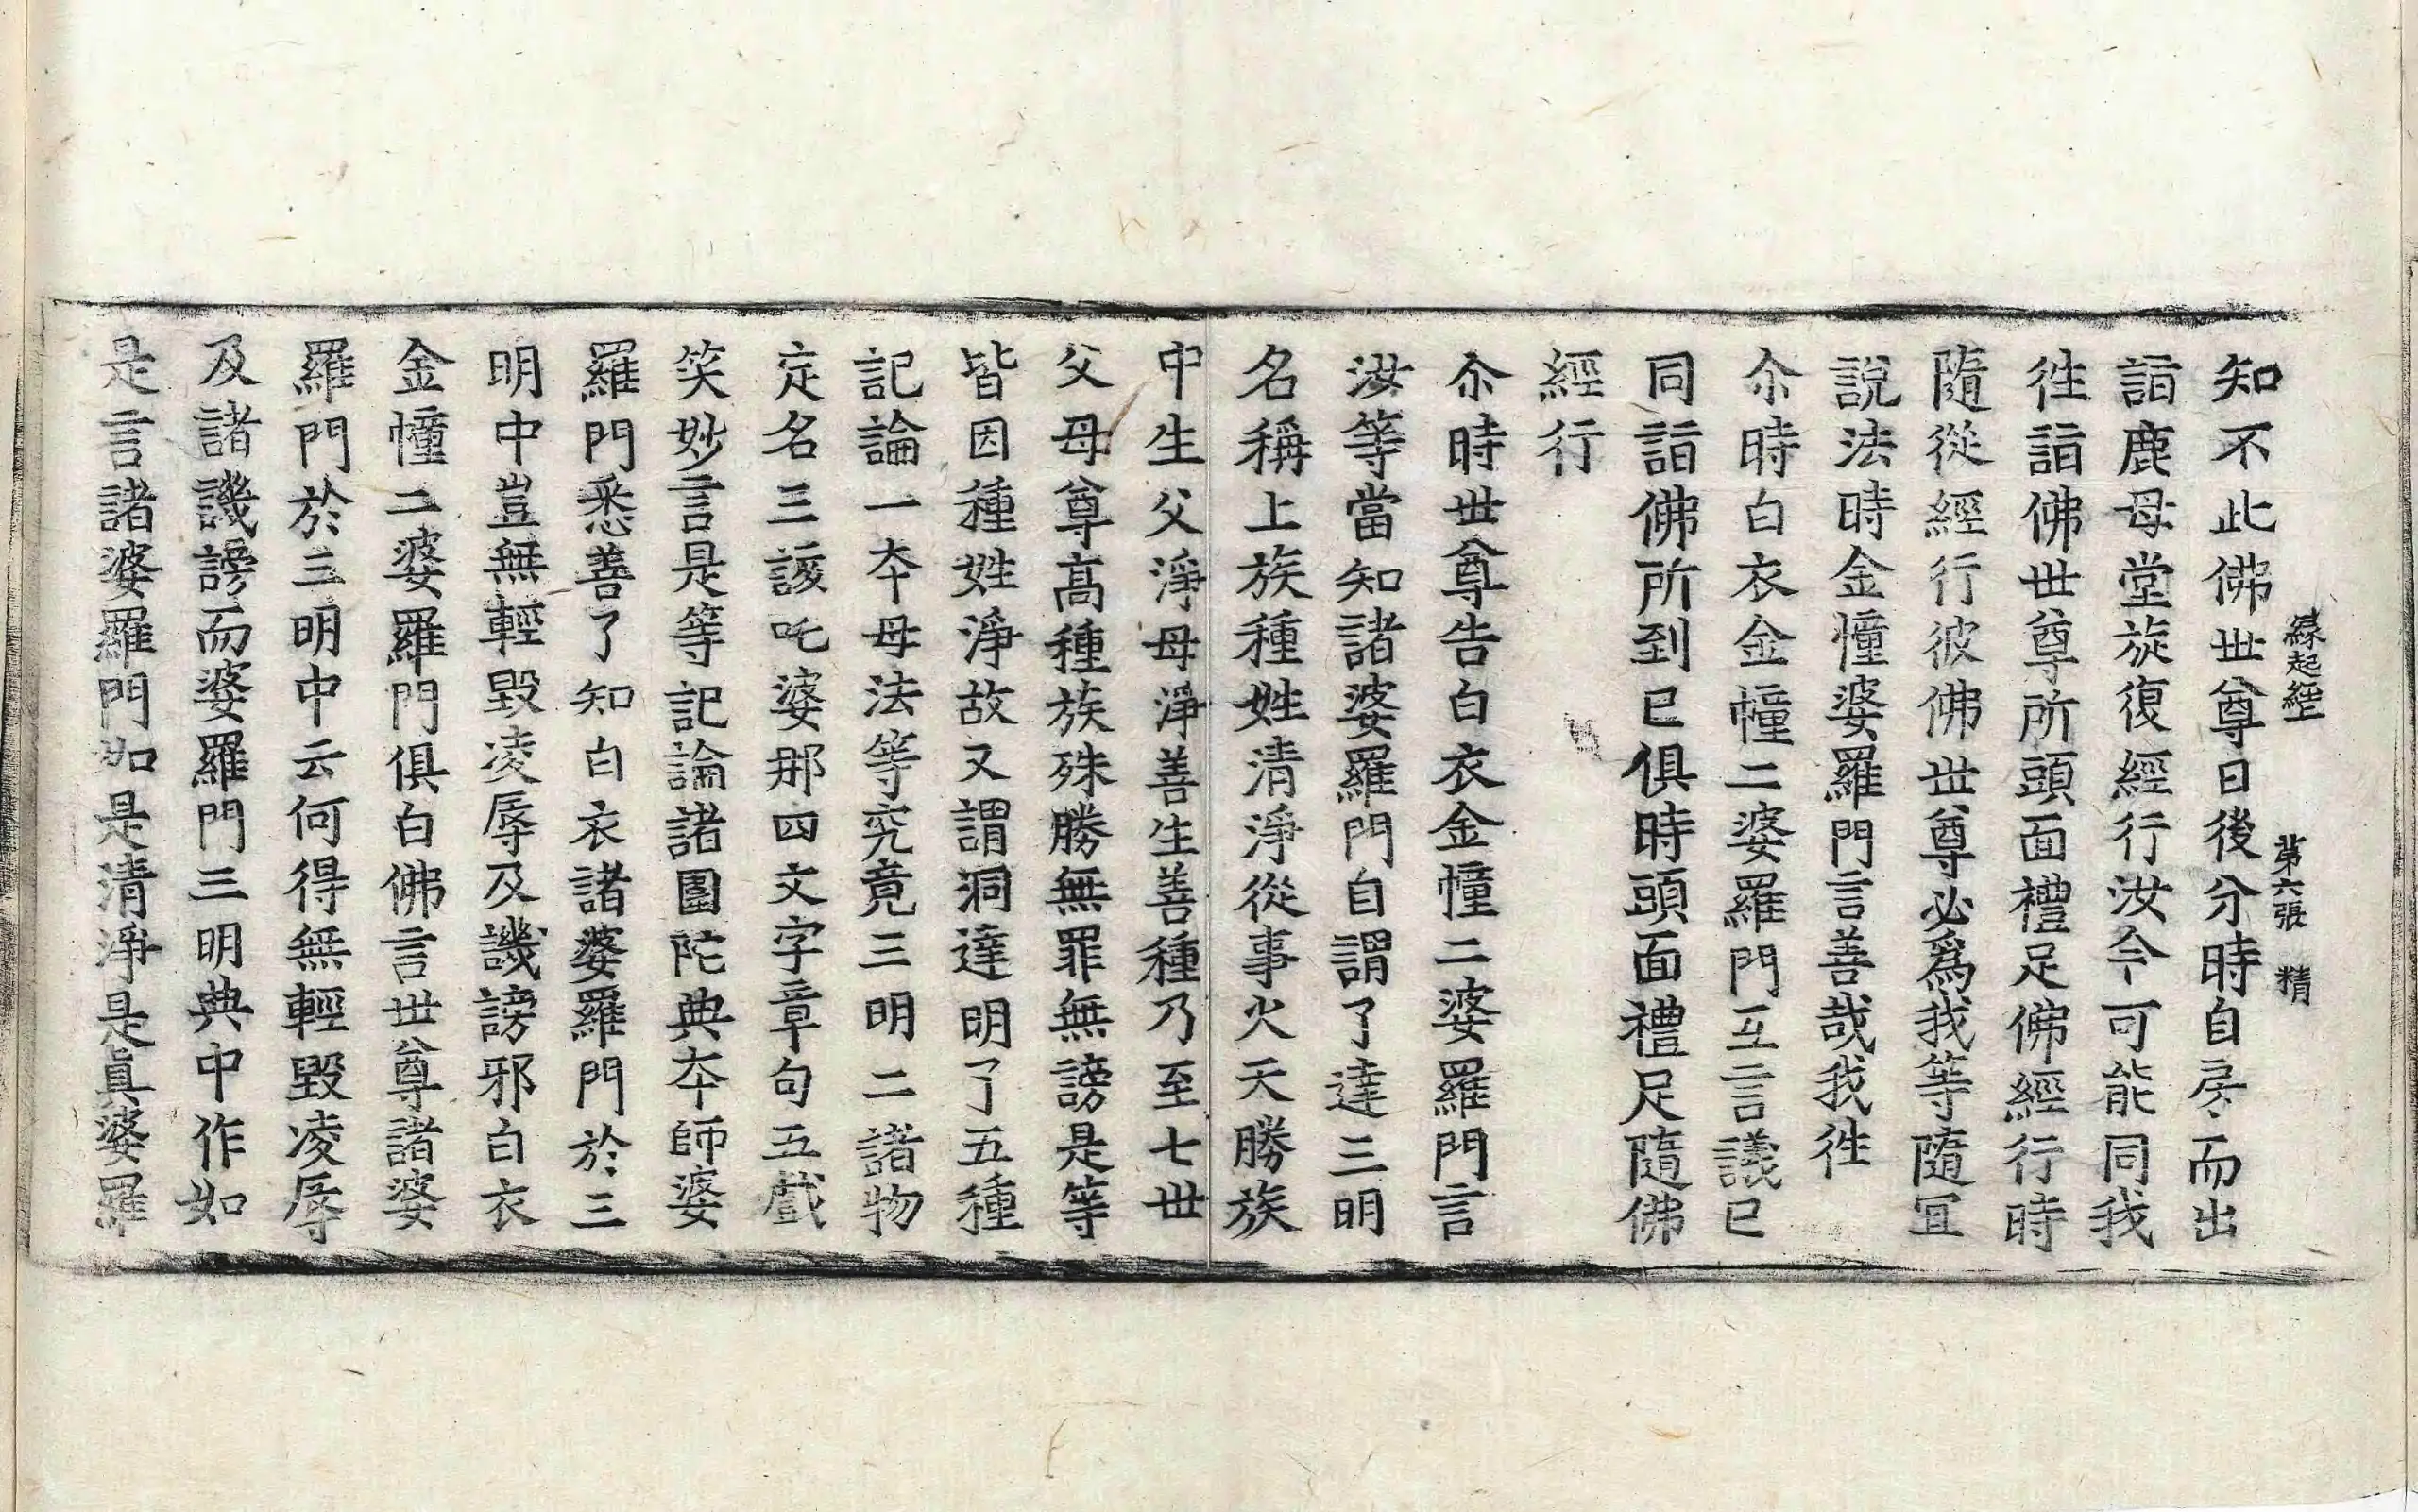 緣起經 第六張 精
知不此佛世尊日後分時自房而出
詣鹿母堂旋復經行汝今可能同我
徃詣佛世尊所頭面禮足佛經行時
隨從經行彼佛世尊必爲我等隨冝
說法時金幢婆羅門言善哉我徃
尒時白衣金幢二婆羅門互言議已
同詣佛所到已俱時頭面禮足隨佛
經行
尒時世尊告白衣金幢二婆羅門言
汝等當知諸婆羅門自謂了達三明
名稱上族種姓清淨從事火天勝族
中生父淨母淨善生善種乃至七世
父母尊高種族殊勝無罪無謗是等
皆因種姓淨故又謂洞達明了五種
記論一夲母法等究竟三明二諸物
㝎名三該吒婆那四文字章句五戲
笑妙言是等記論諸圍陀典夲師婆
羅門悉善了知白衣諸婆羅門於三
明中豈無輕毀凌辱及譏謗邪白衣
金幢二婆羅門俱白佛言世尊諸婆
羅門於三明中云何得無輕毀凌辱
及諸譏謗而婆羅門三明典中作如
是言諸婆羅門如是清淨是眞婆羅